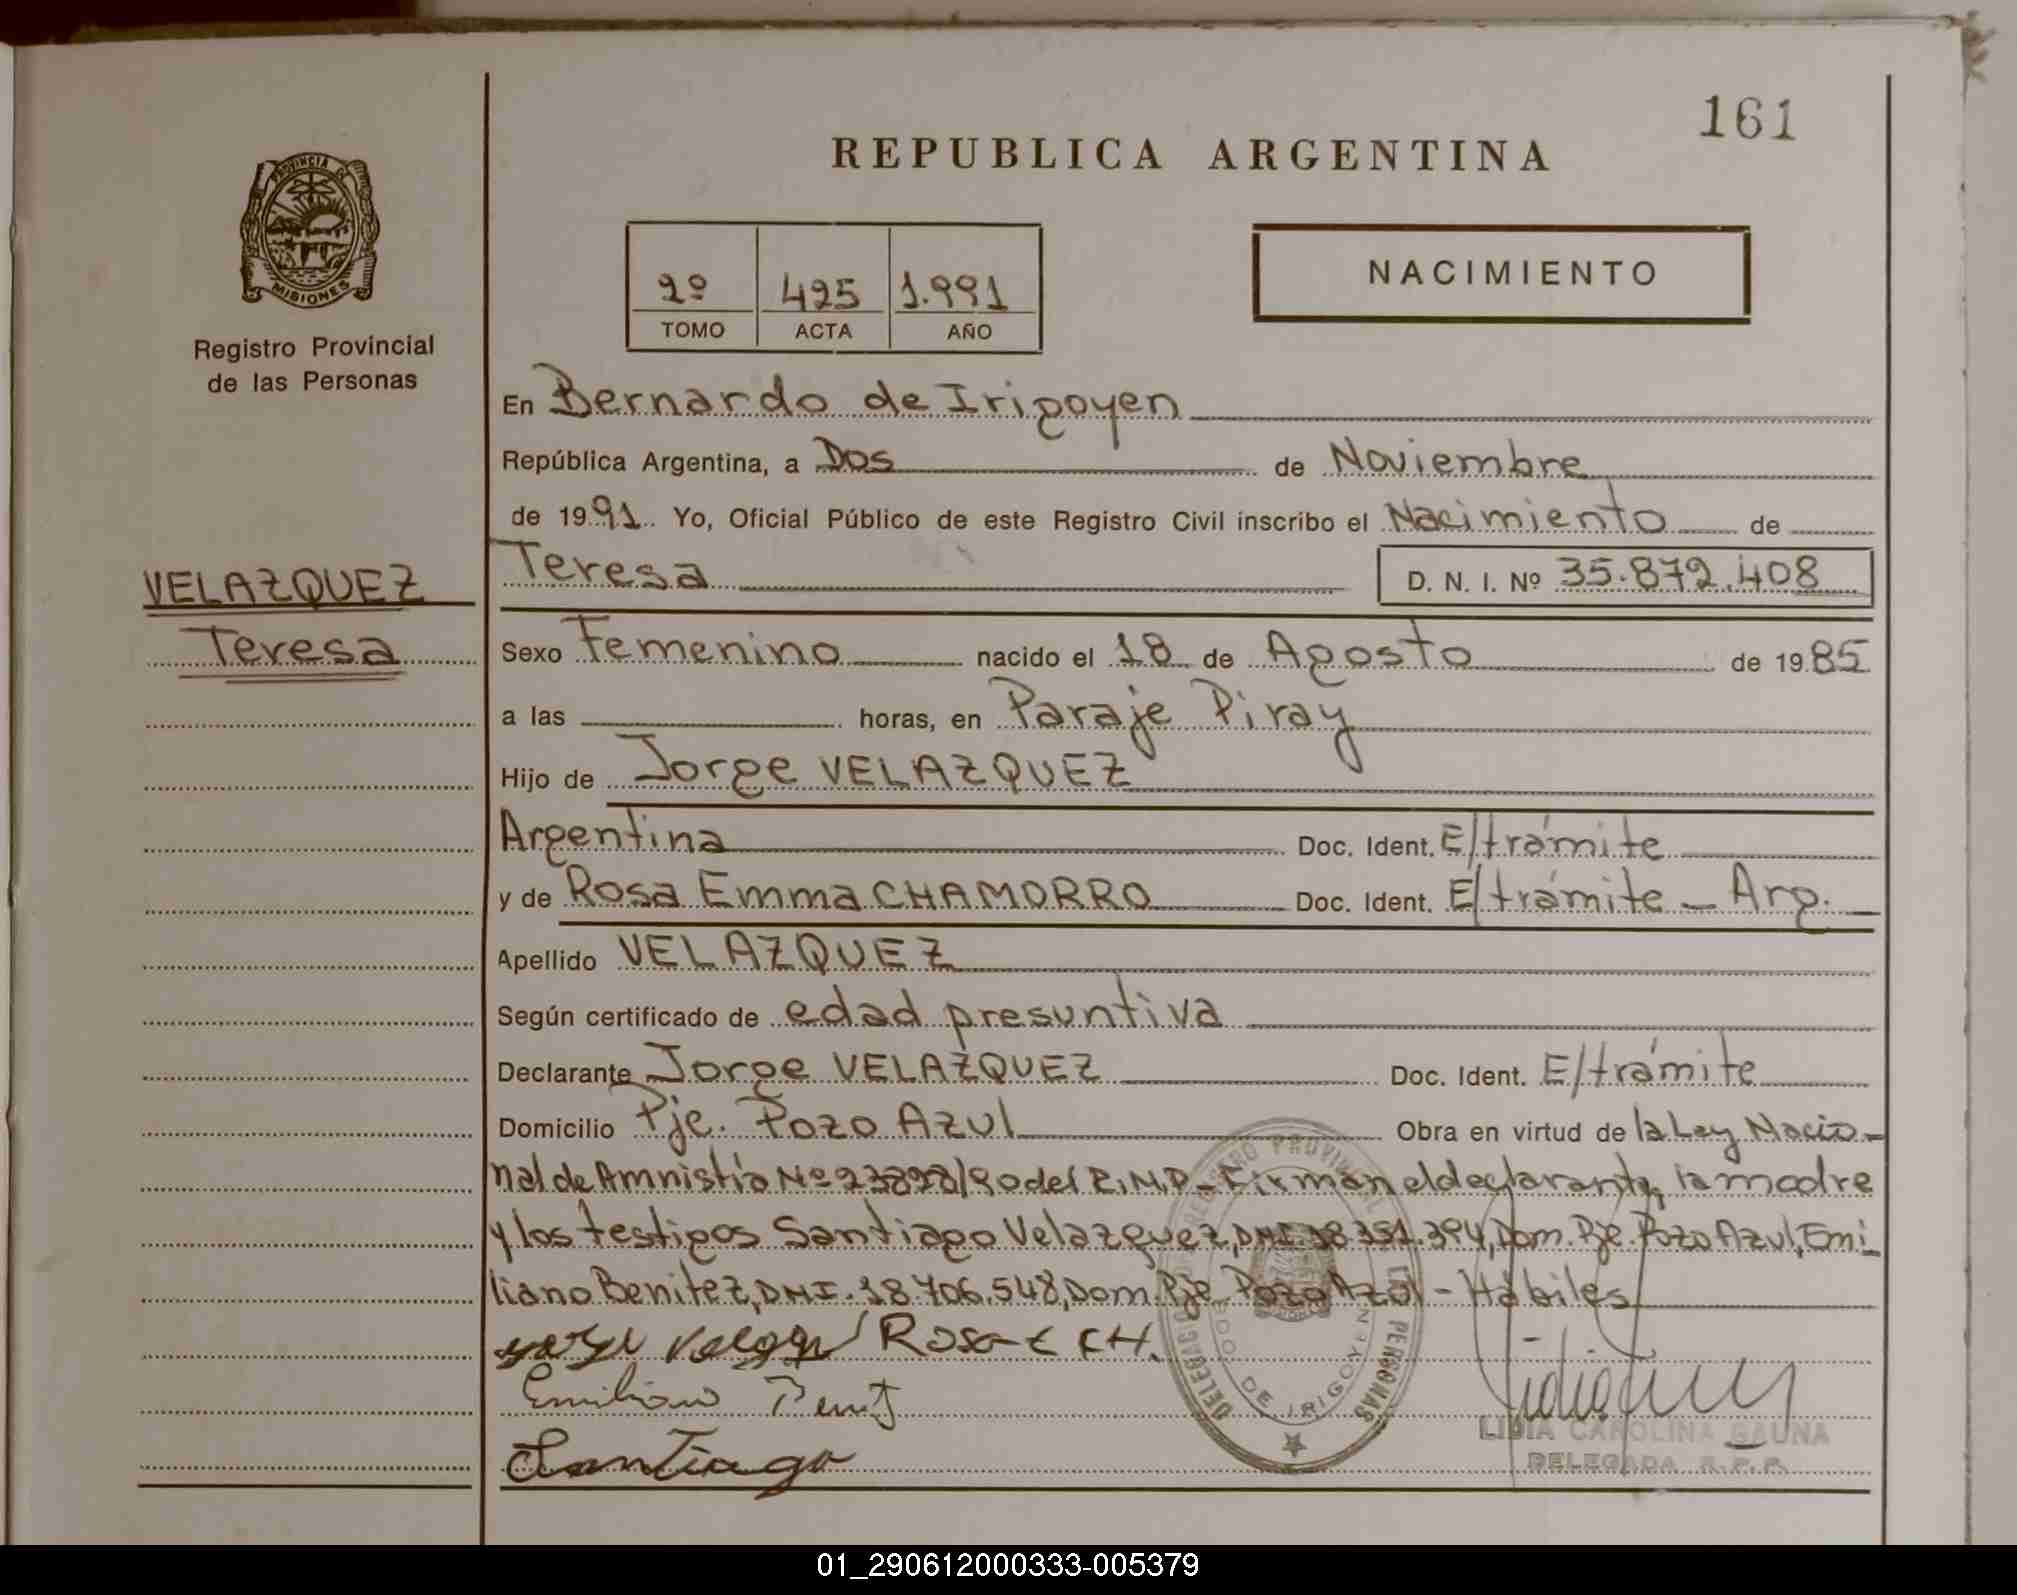 161
REPUBLICA ARGENTINA
PROVINCIA DE
MISIONES
Registro Provincial
de las Personas
2º 425 1.991
TOMO ACTA AÑO
NACIMIENTO
En Bernardo de Irigoyen
República Argentina, a Dos de Noviembre
de 1991 Yo, Oficial Público de este Registro Civil inscribo el Nacimiento de
VELAZQUEZ
Teresa
Teresa D. N. I. Nº 35.872.408
Sexo Femenino nacido el 18 de Agosto de 1985
a las horas, en Paraje Piray
Hijo de Jorge VELAZQUEZ
Argentina Doc. Ident. E/trámite
y de Rosa Emma CHAMORRO Doc. Ident. E/trámite - Arg.
Apellido VELAZQUEZ
Según certificado de edad presuntiva
Declarante Jorge VELAZQUEZ Doc. Ident. E/trámite
Domicilio Pje. Pozo Azul Obra en virtud de la Ley Nacio-
nal de Amnistía Nº 23898/90 del Firman el declarante, la madre
y los testigos Santiago Velazquez, DNI. 18.351.394, Dom. Pje. Pozo Azul, Emi-
liano Benitez, DNI. 18.706.548, Dom. Pje. Pozo Azul - Hábiles
Rosa E CH.
Emiliano
Santiago
DE IRIGOYEN
LAS PERSONAS
LIDIA CAROLINA GAUNA
DELEGADA R.P.P.
01_290612000333-005379